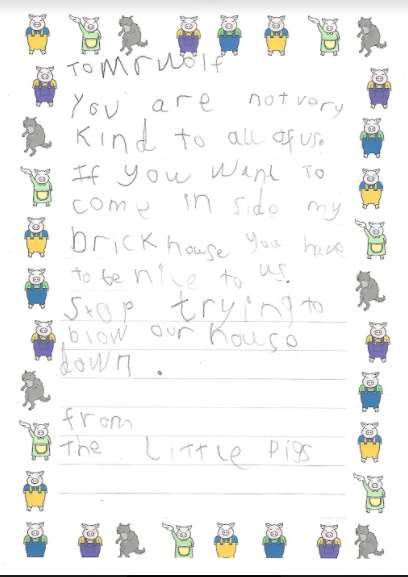 To Mr Wolf
You are not very
kind to all of us.
If you want to
come in side my
brick house you have
to be nice to us.
Stop trying to
blow our house
down.
from
the Little Pigs